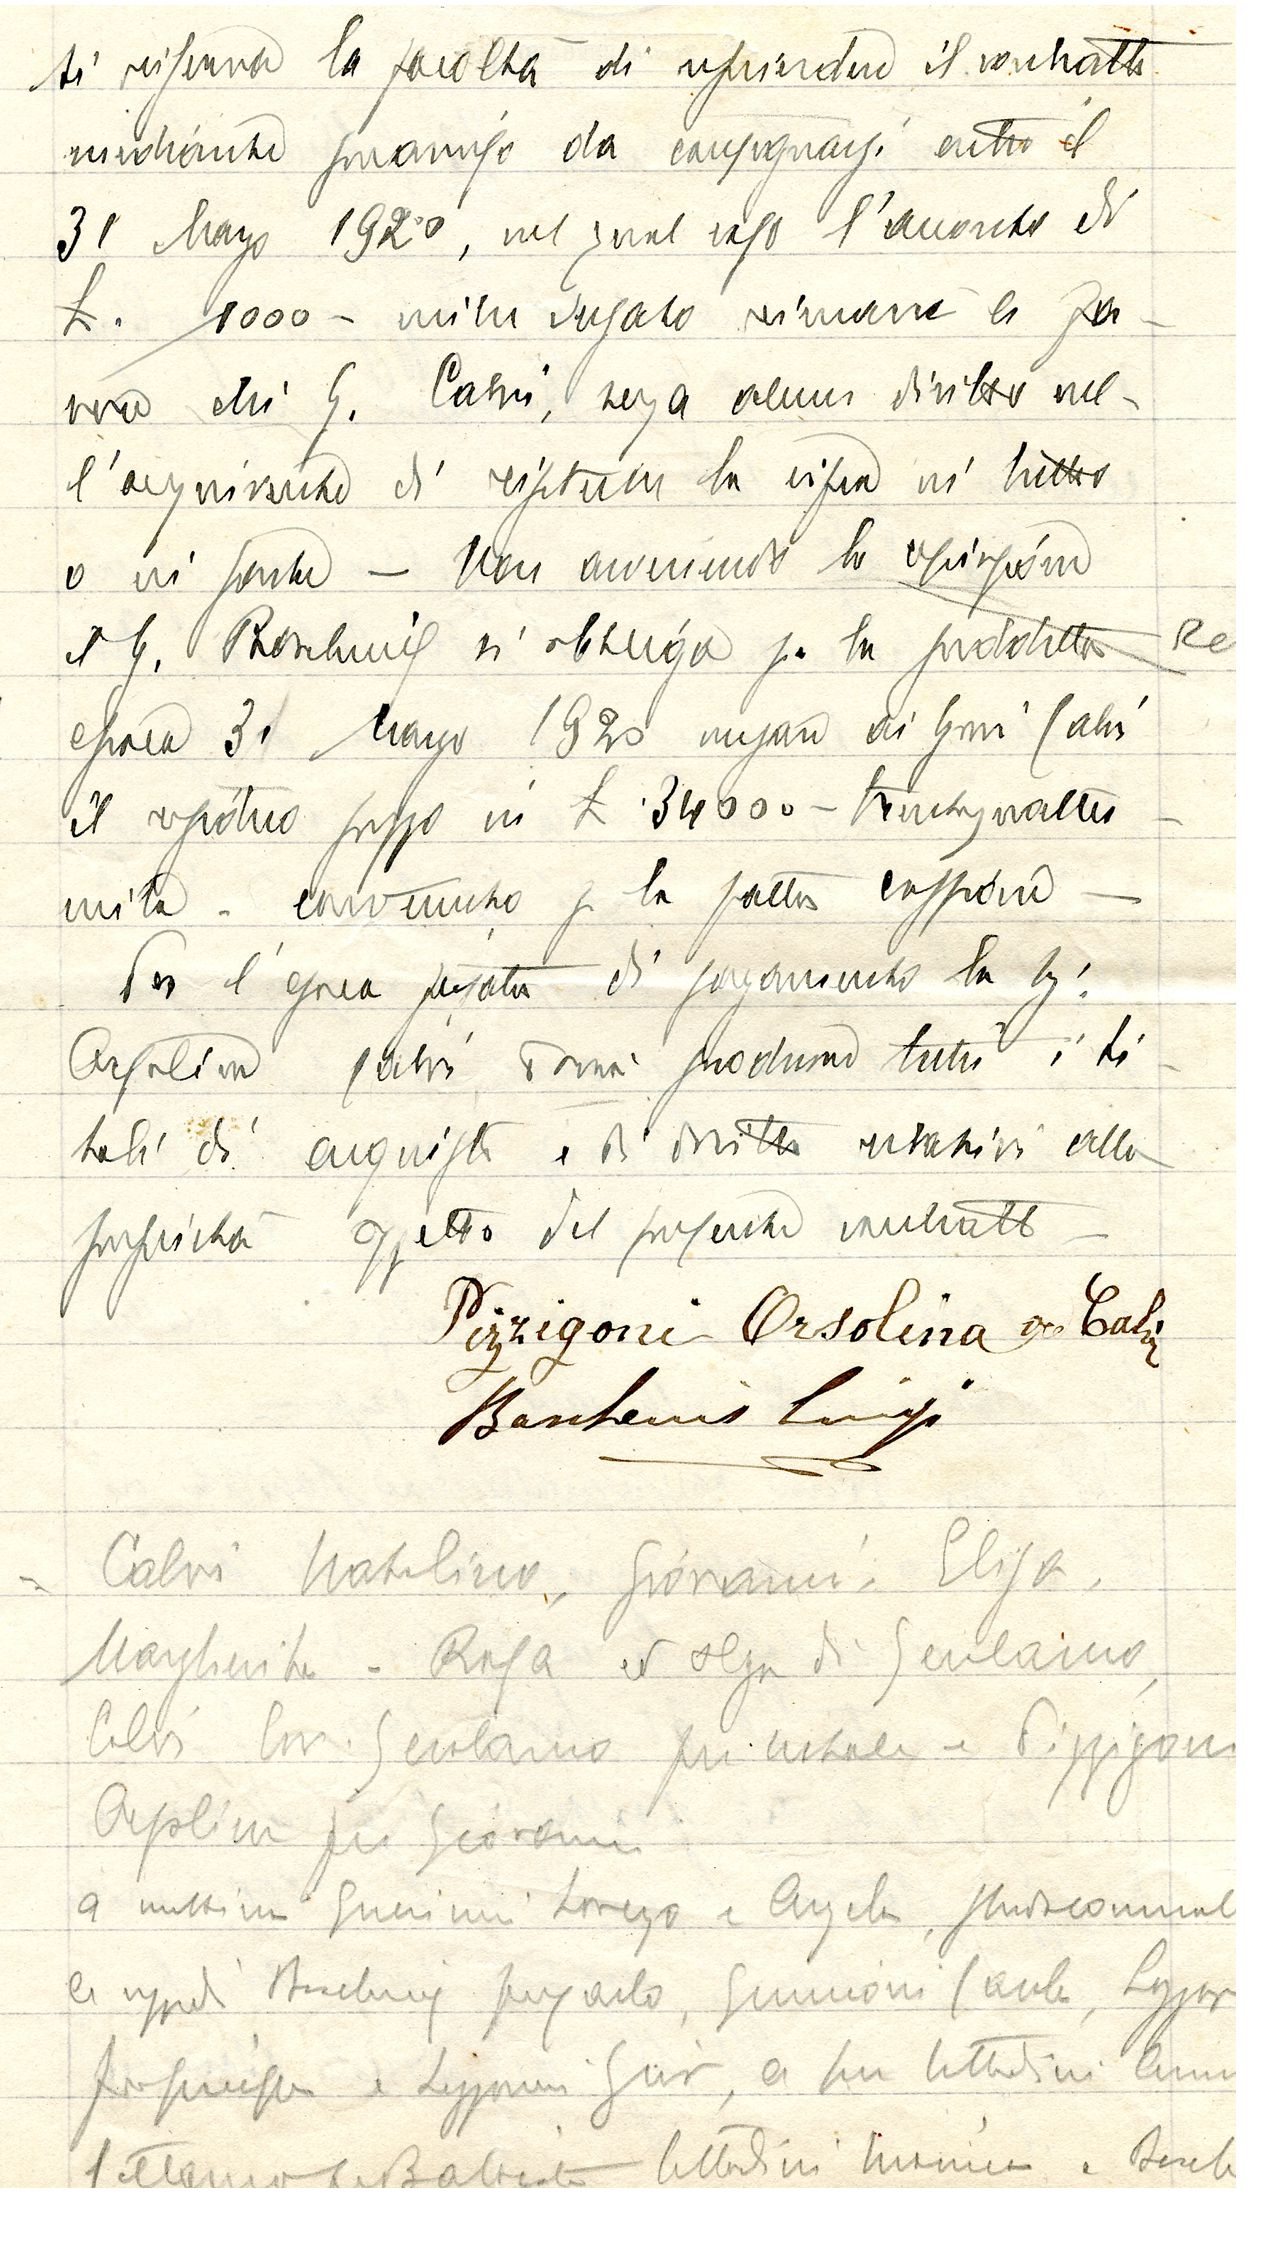 si riserva la facoltà di rescindere il contratto
mediante preavviso da consegnarsi entro il
31 Marzo 1920, nel qual caso l'acconto di
L. 1000 - mille versato rimane a fa-
vore dei S. Calvi, senza alcun diritto nel-
l'acquirente di ripetere la cifra in tutto
o in parte - Non avvenendo la rescissione
il S. Baschenis si obbliga per la predetta Re
epoca 31 Marzo 1920 versare ai Sgri Calvi
il residuo prezzo in L 34000 - trentaquattro -
mila - convenuto p la fatta cessione -
Per l'epoca fissata di pagamento la Sg.
Orsolina Calvi, dovrà produrre tutti i ti-
toli di acquisto e di diritto relativi alla
proprietà oggetto del presente contratto -
Pizzigoni Orsolina in Calvi
Baschenis Luigi
Calvi Natalina, Giovanni, Elisa,
Margherita - Rosa ed Olga di Gerolamo,
Calvi Cav. Gerolamo fu Natale e Pizzigoni
Orsolina fu Giovanni
a mattina Guerini Lorenzo e Angelo, strada comunale
a Baschenis
e Giov, a Cittadini
Battista Cittadini e